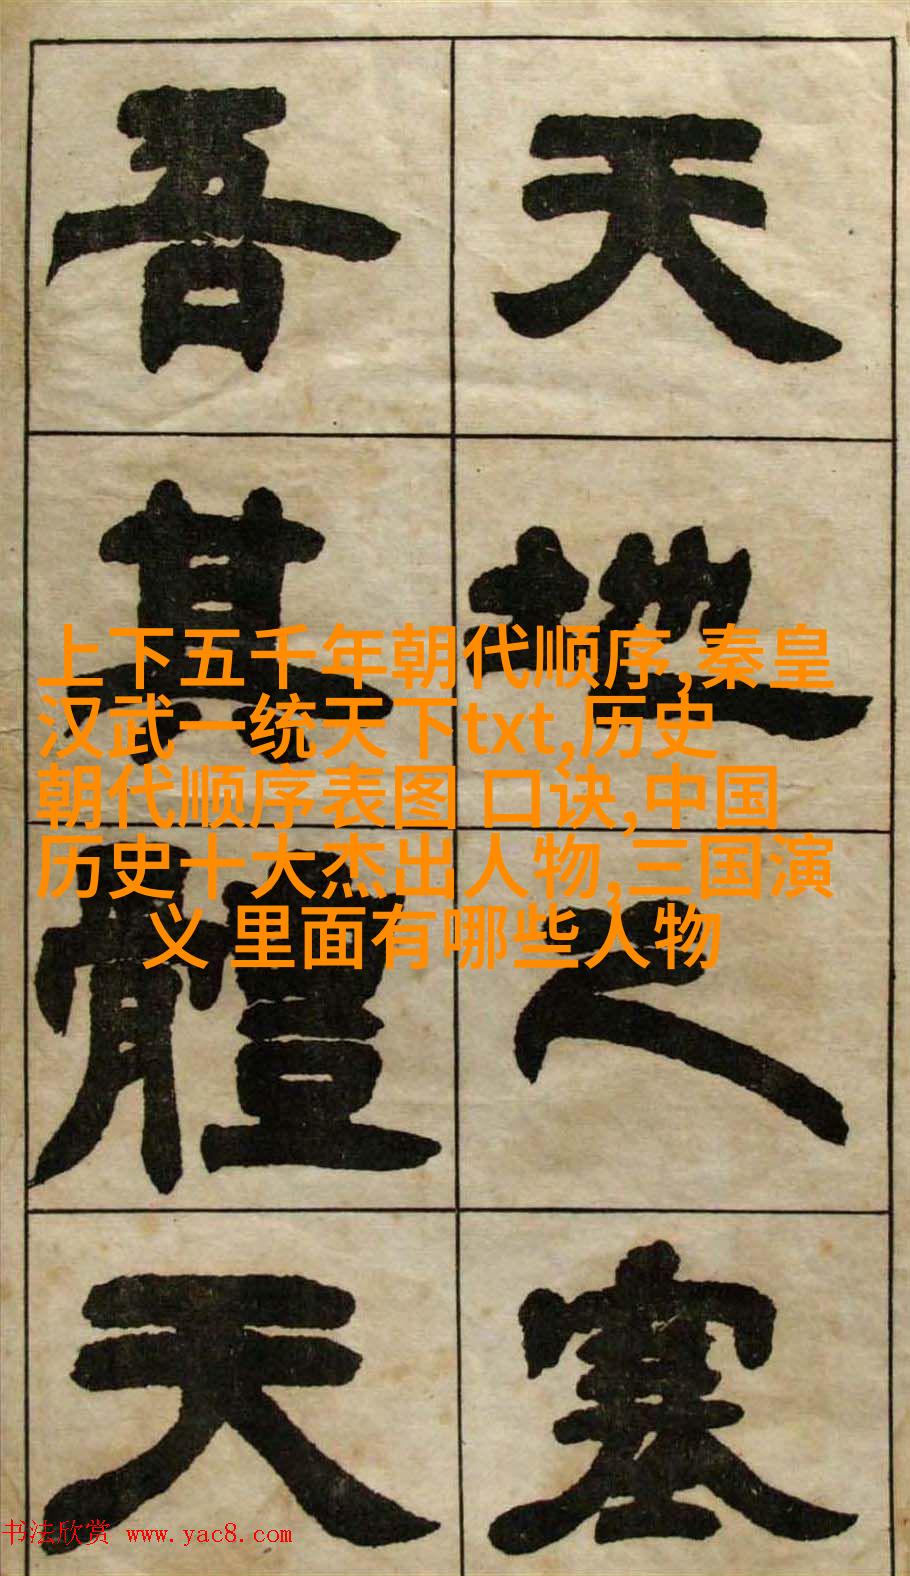 天地之塞
吾其體天
上下五千年朝代顺序,秦皇
汉武一统天下txt,历史
朝代顺序表图 口诀,中国
历史十大杰出人物,三国演
义 里面有哪些人物
书法欣赏 www.yac8.com